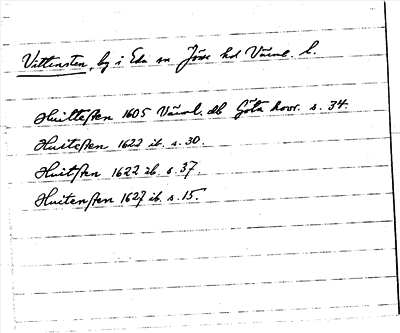 Vittensten, by i Eda sn Jösse hd Värml. l.
Huittesten 1605 Värml. db Göta hovr. s. 34.
Huitesten 1622 ib. s. 30.
Huitsten 1622 ib. s. 37.
Huitensten 1627 ib. s. 15.